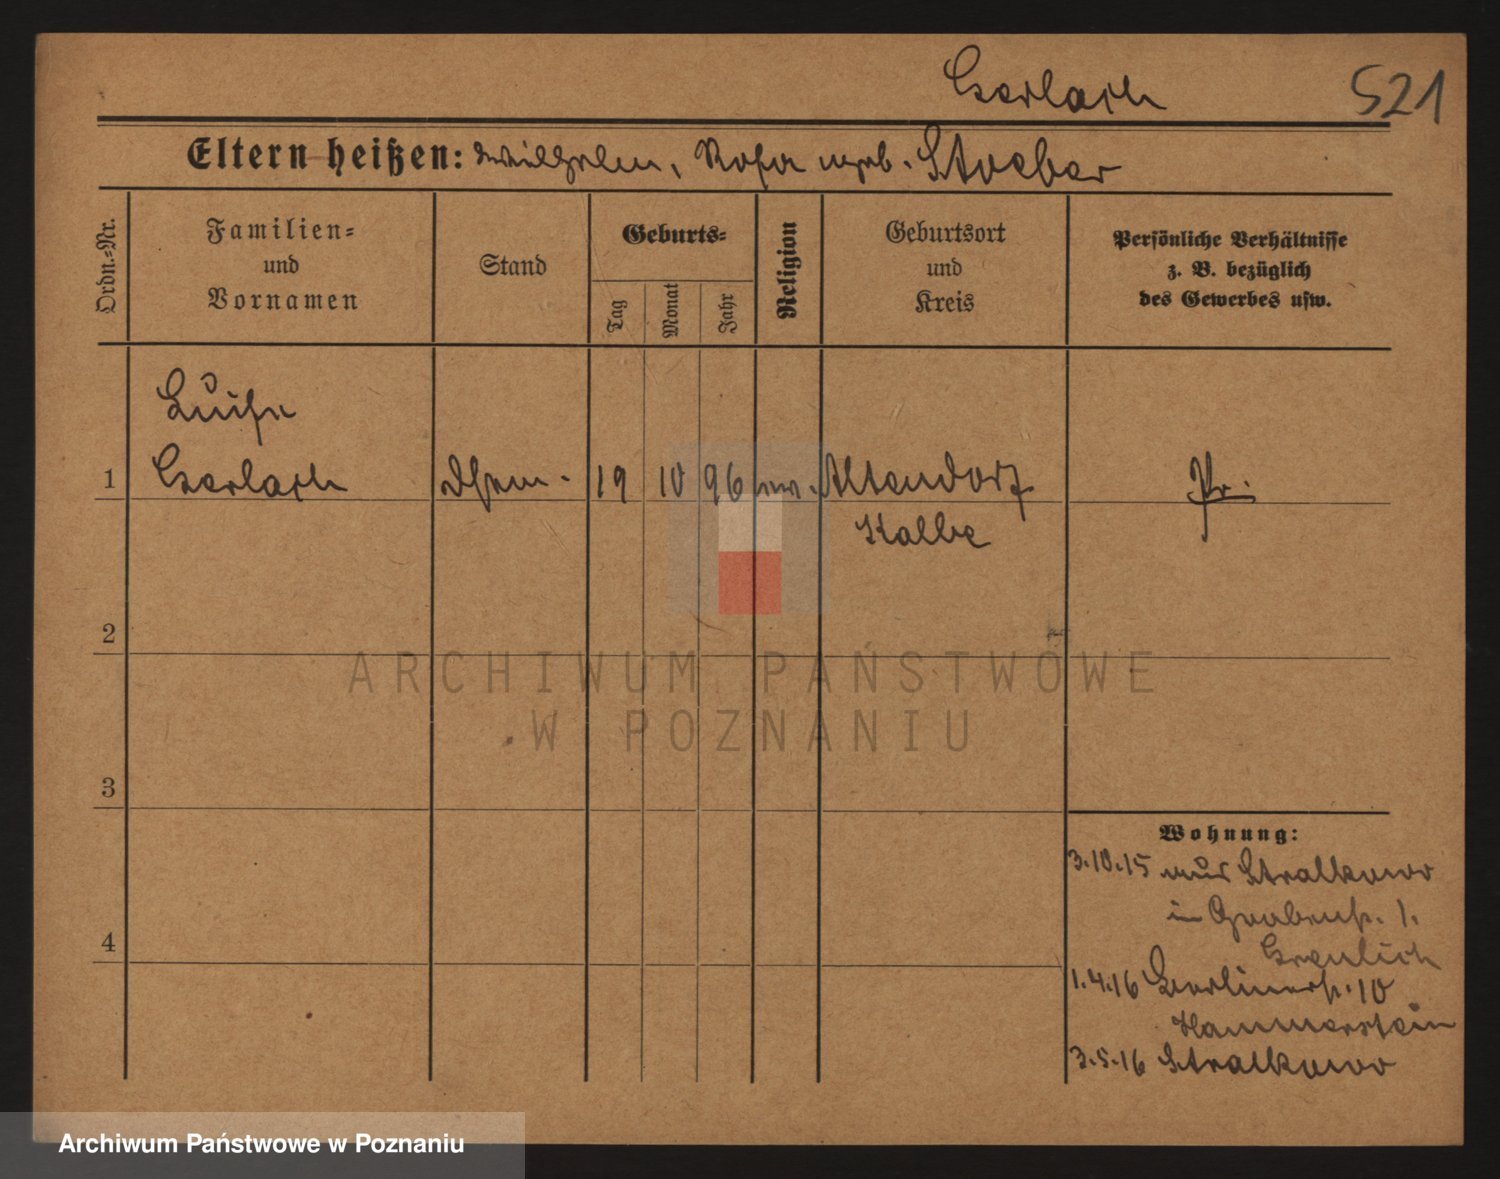 Gerlach 521
Eltern heißen: Wilhelm, Rosa geb. Stoeber
Ordn.-Nr.
Familien-
und
Vornamen
Stand
Geburts-
Tag
Monat
Jahr
Religion
Geburtsort
und
Kreis
Persönliche Verhältnisse
z. B. bezüglich
des Gewerbes usw.
Luise
1 Gerlach 19 10 96 Altendorf Pr.
Kalbe
2
3
4
Wohnung:
3.10.15 aus Stralkowo
in Grabenstr. 1.
1.4.16 Berlinerstr. 10
Hammerstein
3.5.16 Stralkowo
ARCHIWUM PAŃSTWOWE
W POZNANIU
Archiwum Państwowe w Poznaniu